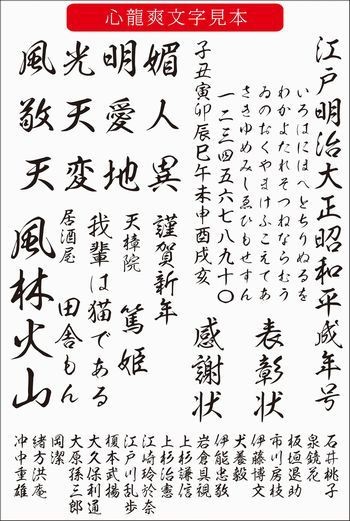 心龍爽文字見本
江戸明治大正昭和平成年号
いろはにほへとちりぬるを
わかよたれそつねならむう
ゐのおくやまけふこえてあ
さきゆめみしゑひもせすん
一二三四五六七八九十〇
子丑寅卯辰巳午未申酉戌亥
表彰状
感謝状
媚人異
明愛地
光天変
風敬天
謹賀新年
天樟院
篤姫
我輩は猫である
居酒屋
田舎もん
風林火山
石井桃子
泉鏡花
板垣退助
市川房枝
伊藤博文
犬養毅
伊能忠敬
岩倉具視
上杉謙信
上杉治憲
江崎玲於奈
江戸川乱歩
榎本武揚
大久保利通
大原孫三郎
岡潔
緒方洪庵
冲中重雄